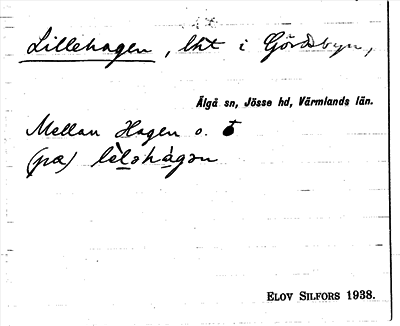 Lillehagen, lht i Gördsbyn,
Älgå sn, Jösse hd, Värmlands län.
Mellan Hagen o.
(pæ)
ELOV SILFORS 1938.